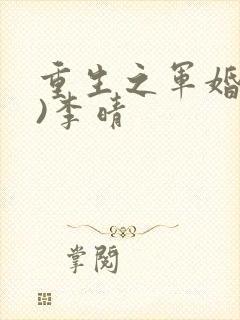 重生之军婚
)李晴
掌阅